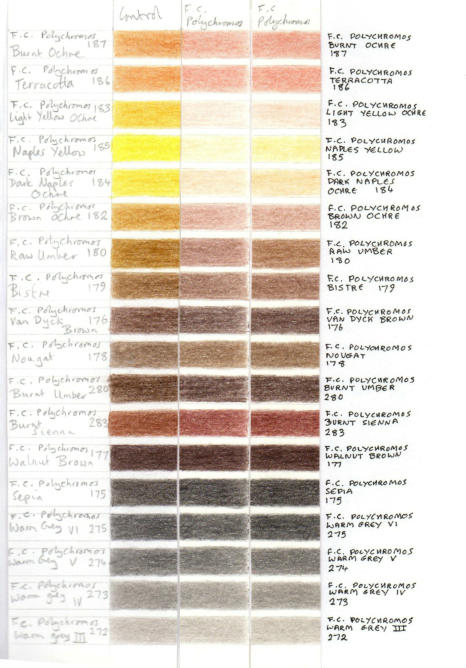 Control
F.C. Polychromos
F.C Polychromos
F.C. Polychromos
Burnt Ochre 187
F.C. POLYCHROMOS
BURNT OCHRE
187
F.C. Polychromos
Terracotta 186
F.C. POLYCHROMOS
TERRACOTTA
186
F.C. Polychromos
Light Yellow Ochre 183
F.C. POLYCHROMOS
LIGHT YELLOW OCHRE
183
F.C. Polychromos
Naples Yellow 185
F.C. POLYCHROMOS
NAPLES YELLOW
185
F.C. Polychromos
Dark Naples 184
Ochre
F.C. POLYCHROMOS
DARK NAPLES
OCHRE 184
F.C. Polychromos
Brown Ochre 182
F.C. POLYCHROMOS
BROWN OCHRE
182
F.C. Polychromos
Raw Umber 180
F.C. POLYCHROMOS
RAW UMBER
180
F.C. Polychromos
Bistre 179
F.C. POLYCHROMOS
BISTRE 179
F.C. Polychromos
Van Dyck 176
Brown
F.C. POLYCHROMOS
VAN DYCK BROWN
176
F.C. Polychromos
Nougat 178
F.C. POLYCHROMOS
NOUGAT
178
F.C. Polychromos
Burnt Umber 280
F.C. POLYCHROMOS
BURNT UMBER
280
F.C. Polychromos
Burnt 283
Sienna
F.C. POLYCHROMOS
BURNT SIENNA
283
F.C. Polychromos
Walnut Brown 177
F.C. POLYCHROMOS
WALNUT BROWN
177
F.C. Polychromos
Sepia 175
F.C. POLYCHROMOS
SEPIA
175
F.C. Polychromos
Warm Grey VI 275
F.C. POLYCHROMOS
WARM GREY VI
275
F.C. Polychromos
Warm Grey V 274
F.C. POLYCHROMOS
WARM GREY V
274
F.C. Polychromos
Warm grey IV 273
F.C. POLYCHROMOS
WARM GREY IV
273
F.C. Polychromos
Warm grey III 272
F.C. POLYCHROMOS
WARM GREY III
272